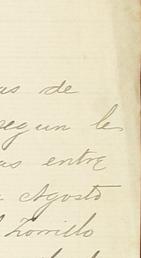 as de
segun le
as entre
Agosto
Zorrillo